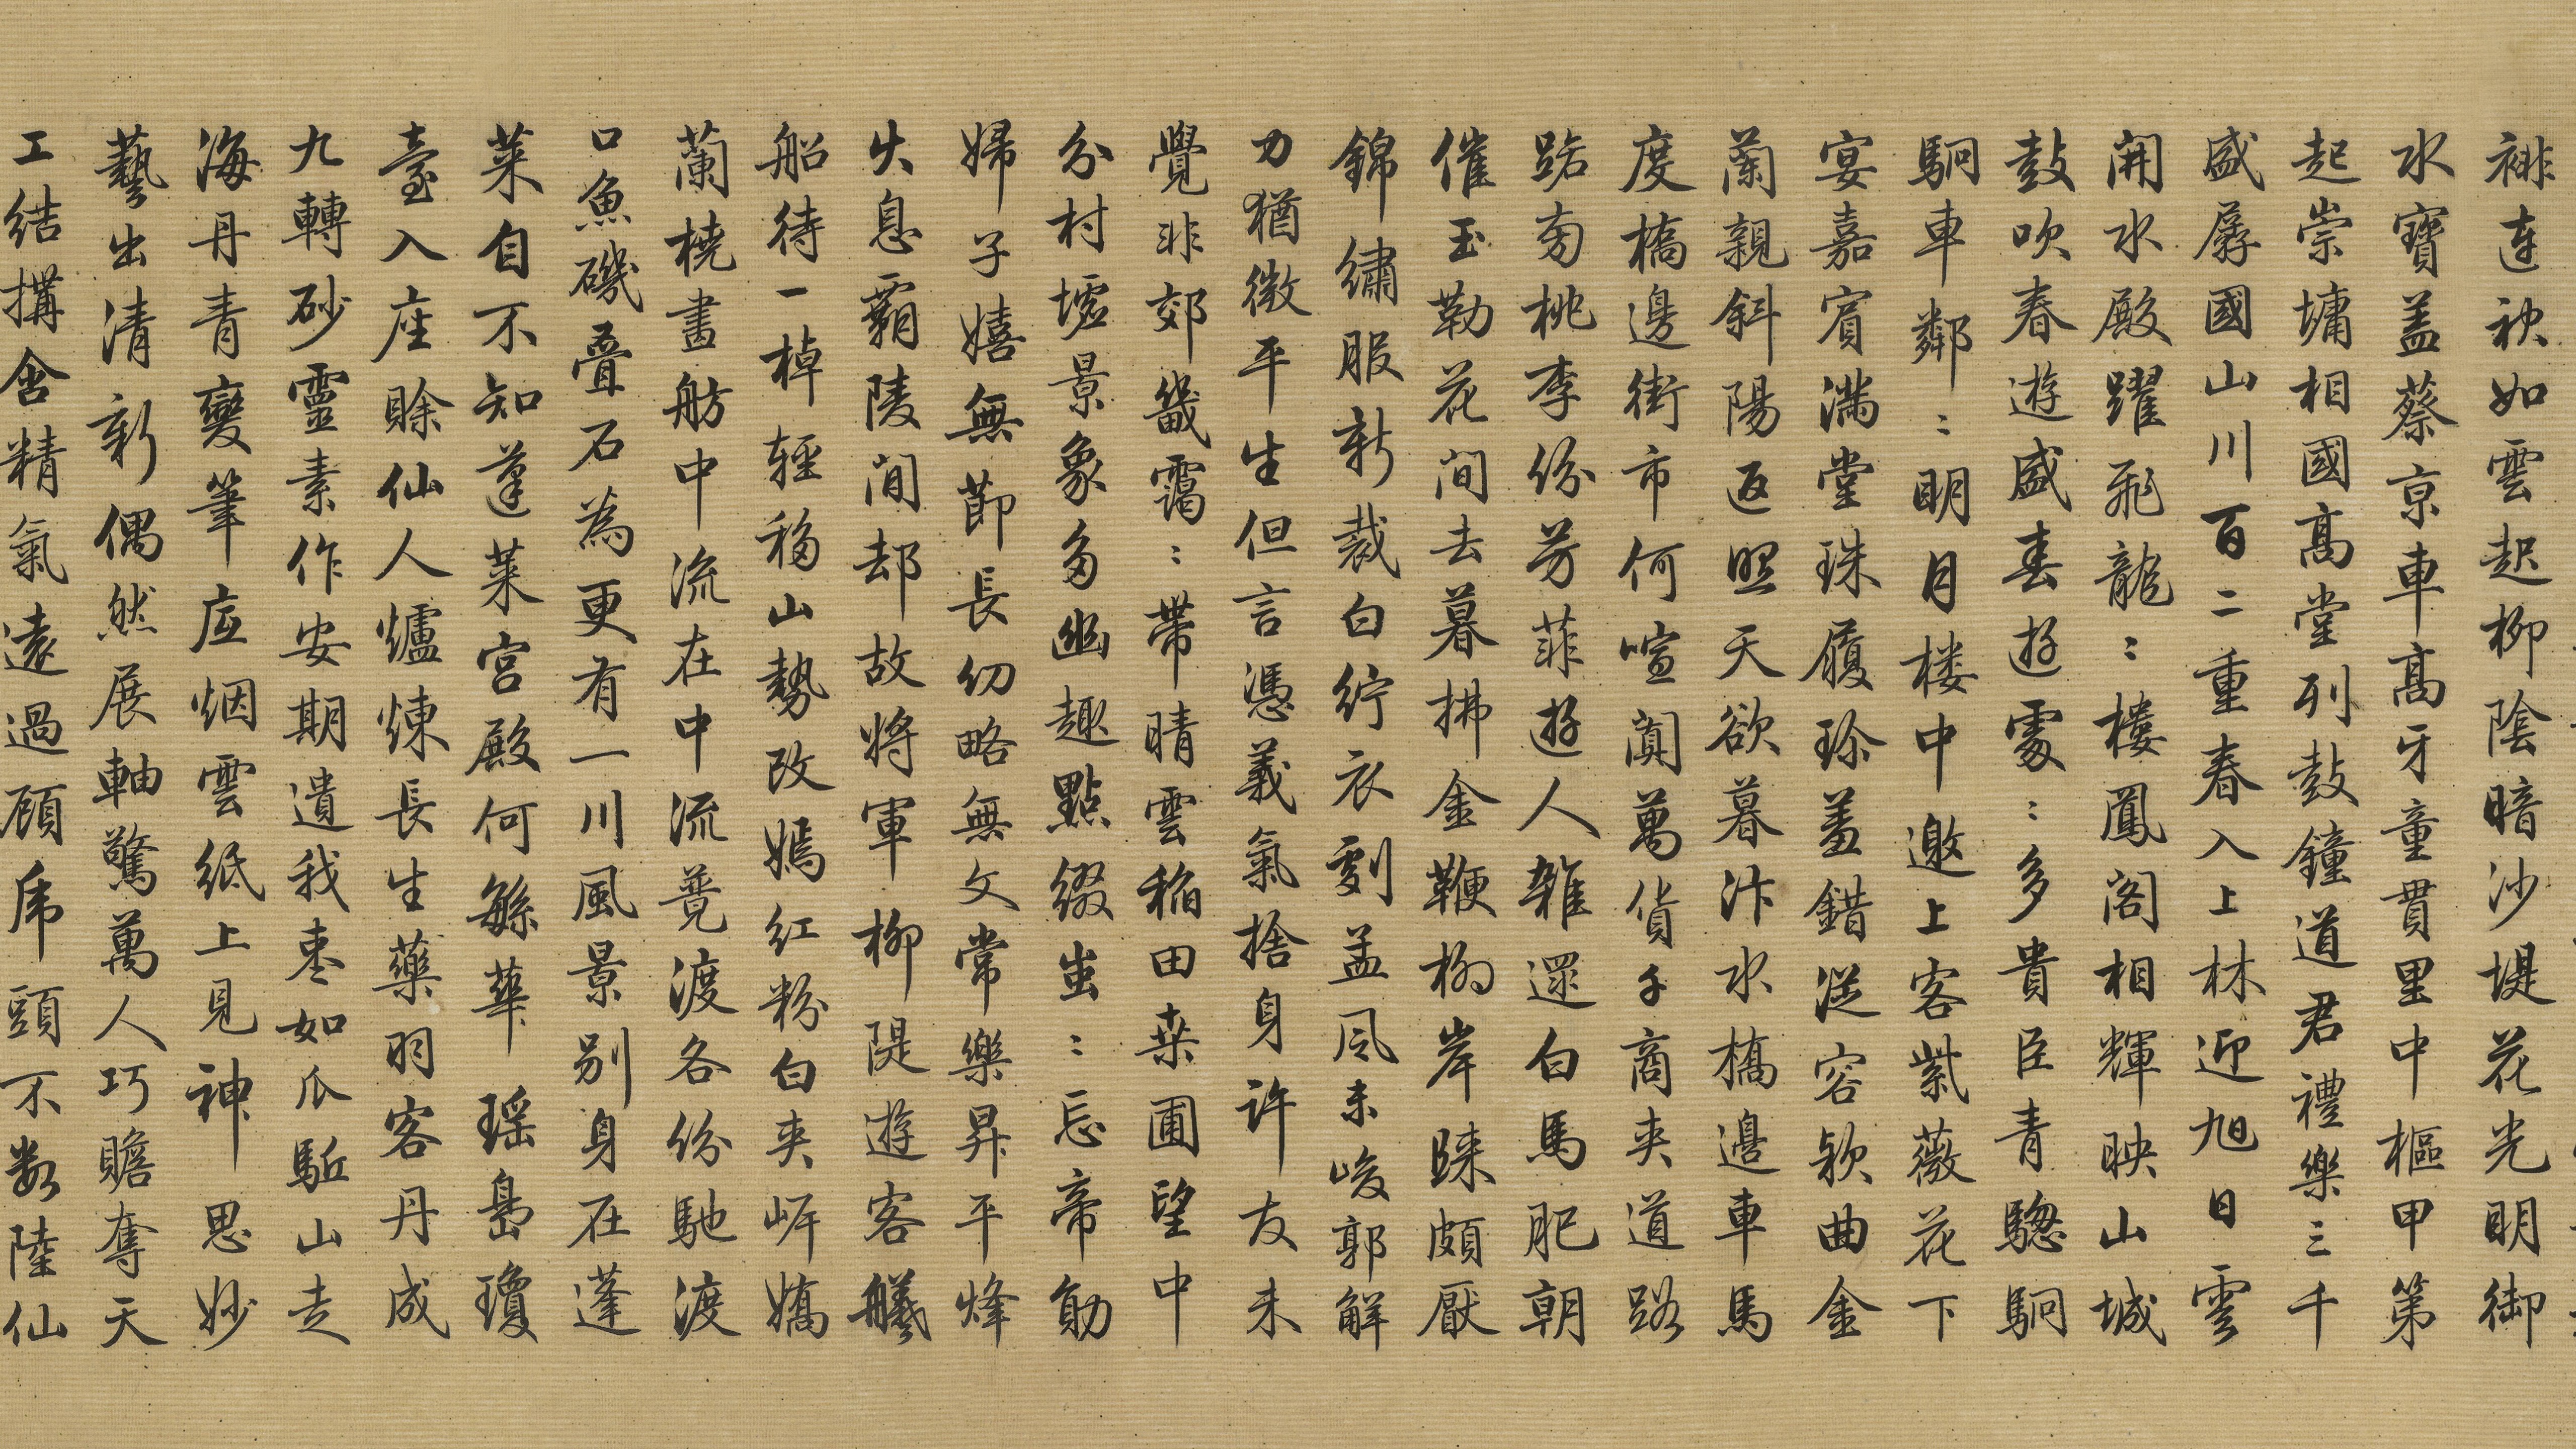 禙連袂如雲起柳陰暗沙堤花光明御
水寶蓋蔡京車高牙童貫里中樞甲第
起崇墉相國高堂列鼓鐘道君禮樂三千
盛孱國山川百二重春入上林迎旭日雲
開水殿躍飛龍:樓鳳閣相輝映山城
鼓吹春遊盛春遊處:多貴臣青驄駉
駉車鄰:明月樓中邀上客紫薇花下
宴嘉賓滿堂珠履珍羞錯從容款曲金
蘭親斜陽返照天欲暮汴水橋邊車馬
度橋邊街市何喧闐萬貨千商夾道路
路旁桃李份芳菲遊人雜遝白馬肥朝
催玉勒花間去暮拂金鞭柳岸歸頗厭
錦繡服新裁白紵衣劇孟風未峻郭解
力猶微平生但言憑義氣捨身許友未
覺非郊畿靄:帶晴雲稲田桑圃望中
分村墟景象多幽趣點綴蚩:忘帝勛
婦子嬉無節長幼略無文常樂昇平烽
火息霸陵間却故將軍柳隄遊客艤
船待一棹輕移山勢改嫣紅粉白夾岍嬌
蘭橈畫舫中流在中流競渡各份馳渡
口魚磯疊石為更有一川風景別身在蓬
萊自不知蓬萊宮殿何繇華瑶島瓊
臺入座賒仙人爐煉長生藥羽客丹成
九轉砂靈素作安期遺我棗如瓜駈山走
海丹青變筆底烟雲紙上見神思妙
藝出清新偶然展軸驚萬人巧贍奪天
工結搆含精氣遠過顧虎頭不數陸仙